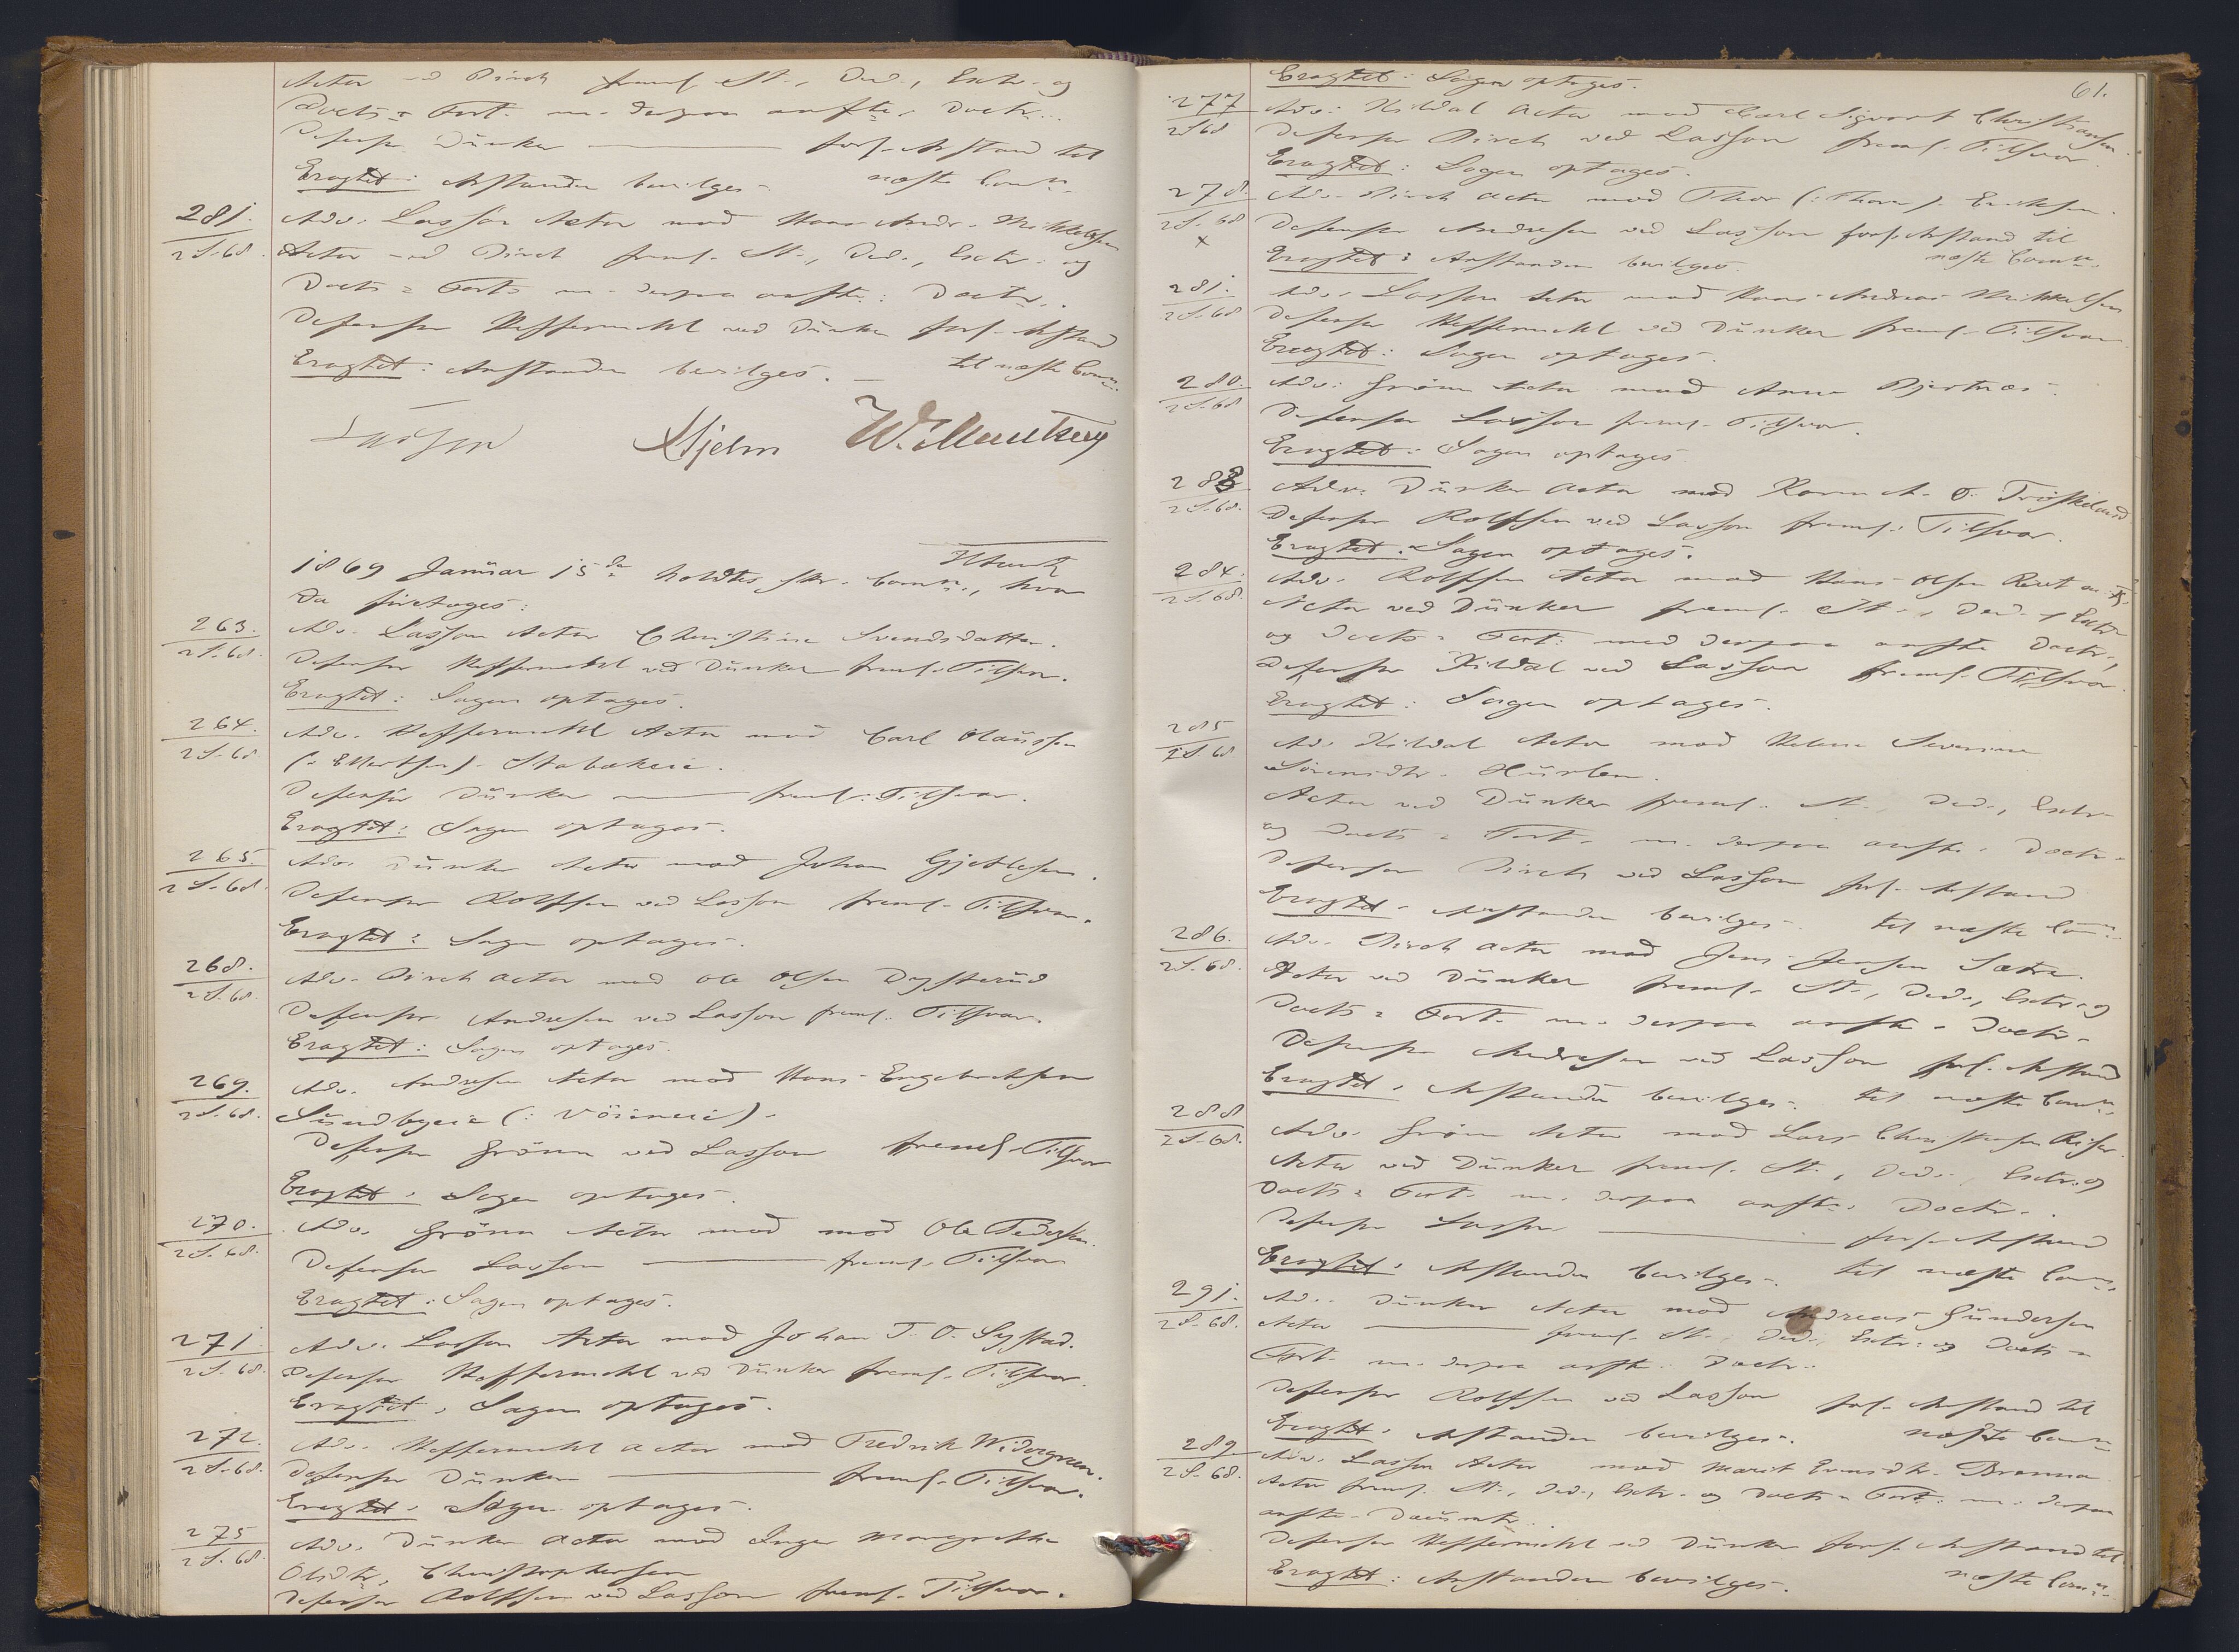 Actor ved Birch freml. St., Ded., Extr. og
Docts- Fort. m. derpaa anfte. Doctr.
Defensor Dünker ——— forl. Anstand til
Eragtet: Anstanden bevilges. næste Comn.
281. Adv. Lasson Actor mod Hans Andr. Mikkelsen
2 S. 68. Actor ved Birch freml. St., Ded., Extr. og
Docts- Fort. m. derpaa anfte. Doctr.
Defensor Heffermehl ved Dünker forl. Anstand
Eragtet: Anstanden bevilges. — til næste Comn.
Lasson Hjelm W. Munthe
1869 Januar 15de holdtes str. Comn., hvor
da foretoges:
263. Adv. Lasson Actor Christine Svendsdatter.
2 S. 68. Defensor Heffermehl ved Dünker freml. Tilsvar.
Eragtet: Sagen optages.
264. Adv. Heffermehl Actor mod Carl Olaüssen
2 S. 68 (: Ellertsen) Stabækeie.
Defensor Dünker ——— freml. Tilsvar.
Eragtet: Sagen optages.
265. Adv. Dünker Actor mod Johan Gjertsen.
2 S. 68. Defensor Rolfsen ved Lasson freml. Tilsvar.
Eragtet: Sagen optages.
268. Adv. Birch Actor mod Ole Olsen Dysterüd
2 S. 68. Defensor Andresen ved Lasson freml. Tilsvar.
Eragtet: Sagen optages.
269. Adv. Andresen Actor mod Hans Engebretsen
2 S. 68. Sündbyeie (:
Defensor Grönn ved Lasson freml. Tilsvar
Eragtet: Sagen optages.
270. Adv. Grönn Actor mod mod Ole Pedersen.
2 S. 68. Defensor Lasson ——— freml. Tilsvar
Eragtet: Sagen optages.
271 Adv. Lasson Actor mod Johan T. O. Systad.
2 S. 68. Defensor Heffermehl ved Dünker freml. Tilsvar.
Eragtet: Sagen optages.
272. Adv. Heffermehl Actor mod Fredrik Widergreen.
2 S. 68. Defensor Dünker ——— freml. Tilsvar.
Eragtet: Sagen optages.
275 Adv. Dünker Actor mod Inger Margrethe
2 S. 68. Olsdtr. Christophersen
Defensor Rolfsen ved Lasson freml. Tilsvar.
61.
Eragtet: Sagen optages.
277 Adv. Kildal Actor mod Carl Sigvart Christiansen.
2 S 68 Defensor Birch ved Lasson freml. Tilsvar.
Eragtet: Sagen optages.
278. Adv. Birch Actor mod Thor (: Thorn) Eriksen.
2 S. 68 Defensor Andresen ved Lasson forl. Anstand til
x Eragtet: Anstanden bevilges. næste Comn.
281. Adv. Lasson Actor mod Hans Andreas Mikkelsen
2 S. 68 Defensor Heffermehl ved Dünker freml. Tilsvar.
Eragtet: Sagen optages.
280. Adv. Grönn Actor mod Anne Bjertnæs.
2 S. 68 Defensor Lasson freml. Tilsvar.
Eragtet: Sagen optages.
283 Adv. Dünker Actor mod Karen A. O. Tröskeland.
2 S. 68. Defensor Rolfsen ved Lasson freml. Tilsvar.
Eragtet: Sagen optages.
284. Adv. Rolfsen Actor mod Hans Olsen
2 S. 68. Actor ved Dünker freml. St., Ded., Extr.
og Docts- Fort. med derpaa anfte Doctr.,
Defensor Kildal ved Lasson freml. Tilsvar.
Eragtet: Sagen optages.
285 Adv. Kildal Actor mod Helene Severine
2 S. 68 Sörensdtr. Hürlen.
Actor ved Dünker freml. St., Ded., Extr.
og Docts- Fort. m. derpaa anfte. Doctr.
Defensor Birch ved Lasson forl. Anstand
Eragtet: Anstanden bevilges. til næste Comn.
286. Adv. Birch Actor mod Jens Jensen Sætre.
2 S. 68. Actor ved Dünker freml. St., Ded., Extr. og
Docts- Fort. m. derpaa anfte. Doctr.
Defensor Andresen ved Lasson forl. Anstand
Eragtet: Anstanden bevilges. til næste Comn.
288 Adv. Grönn Actor mod Lars Christensen
2 S. 68. Actor ved Dünker freml. St., Ded., Extr. og
Docts- Fort. m. derpaa anfte. Doctr.
Defensor Lasson ——— forl. Anstand
Eragtet: Anstanden bevilges. til næste Comn.
291. Adv. Dünker Actor mod Andreas Gündersen
2 S. 68. Actor ——— freml. St., Ded., Extr. og Docts-
Fort. m. derpaa anfte. Doctr.
Defensor Rolfsen ved Lasson forl. Anstand til
Eragtet: Anstanden bevilges. næste Comn.
289 Adv. Lasson Actor mod Marit Evensdtr. Brenna
2 S. 68. Actor freml. St., Ded., Extr. og Docts- Fort. m. derpaa
anfte.
Defensor Heffermehl ved Dünker forl. Anstand til
Eragtet: Anstanden bevilges. næste Comn.